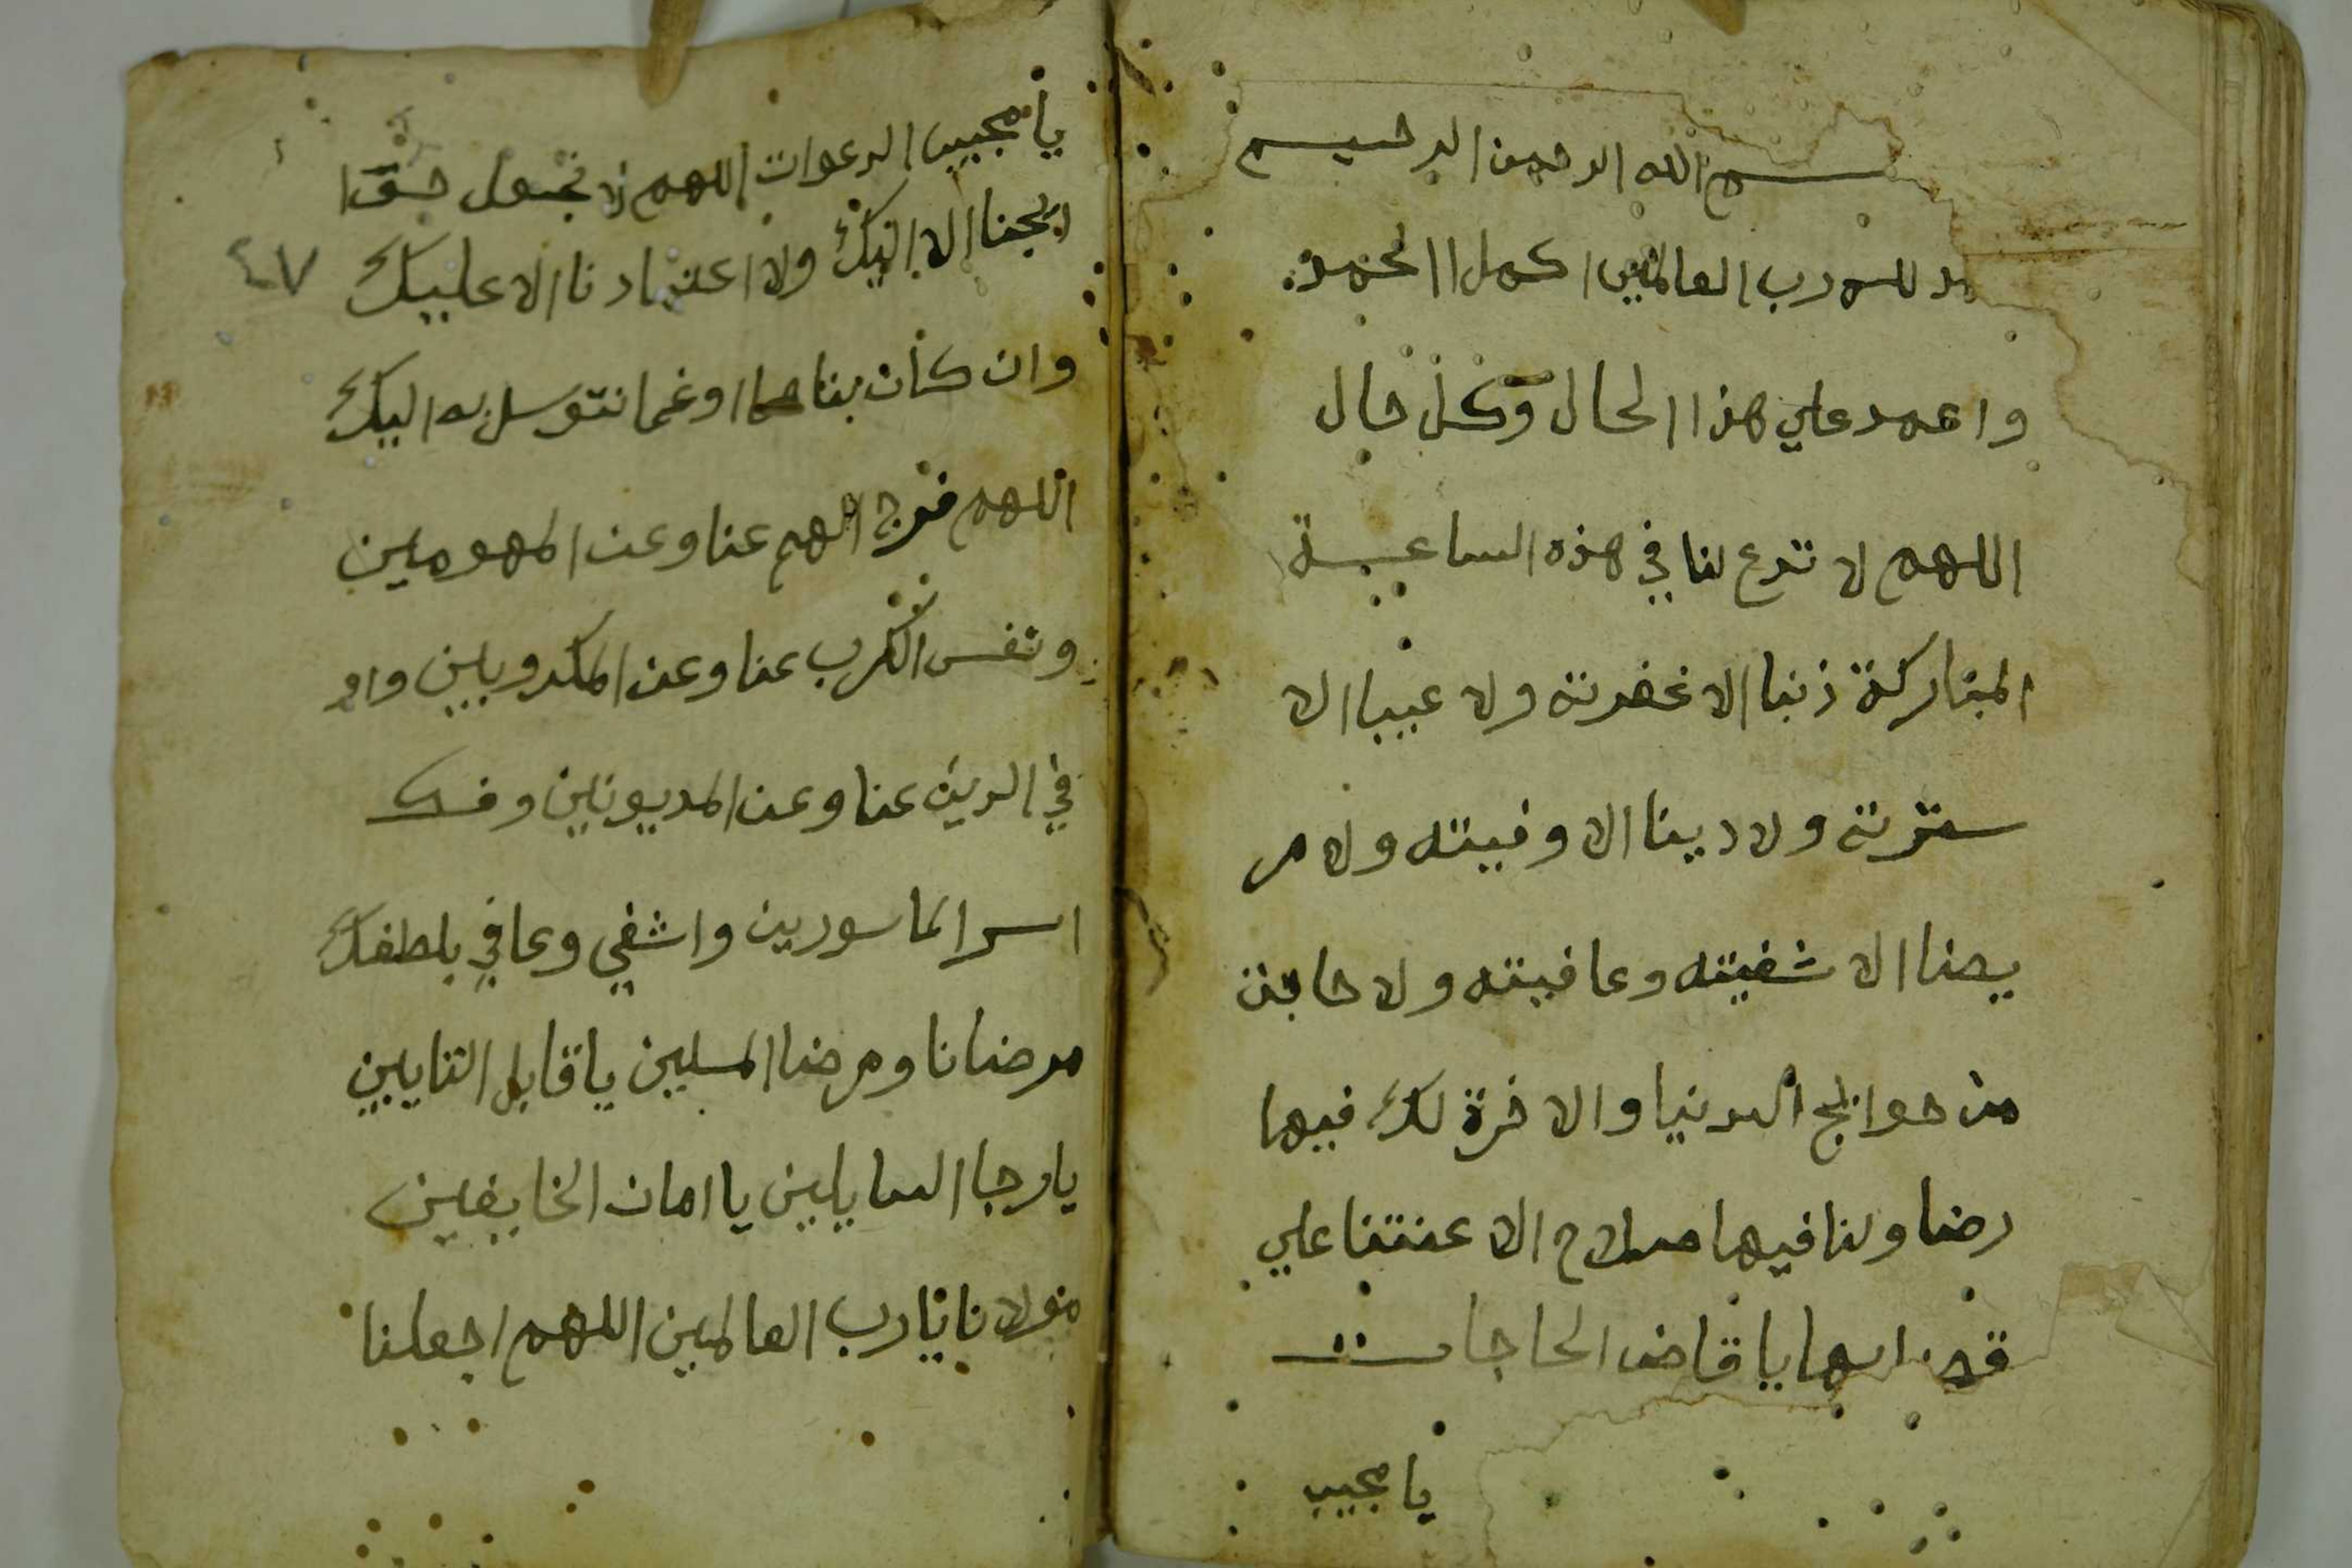 بسم الله الرحمن الرحيم
لله رب العالمين اكمل الحمد
واحمد علي هذا الحال وكل حال
اللهم لا تدع لنا في هذه الساعة
المباركة ذنبا الا غفرته ولا عيبا الا
سترته ولا دينا الا وفيته ولا مر
يضا الا شفيته وعافيته ولا حاجة
من حوايج الدنيا والاخرة لك فيها
رضا ولنا فيها صلاح الا عنتنا علي
يا قاض الحاجات
يا مجيب
يا مجيب الدعوات اللهم لا تجعل
الا اليك ولا اعتمادنا الا عليك
وان كان بنا هما اوغما نتوسل به اليك
اللهم فرج الهم عنا وعن المهمومين
ونفس الكرب عنا وعن المكروبين واو
في الدين عنا وعن المديونين وفك
اسر الماسورين واشفي وعافي بلطفك
مرضانا ومرضا المسلمين يا قابل التايبين
يا رجا السايلين يا امان الخايفين
مولانا يا رب العالمين اللهم اجعلنا
٤٧